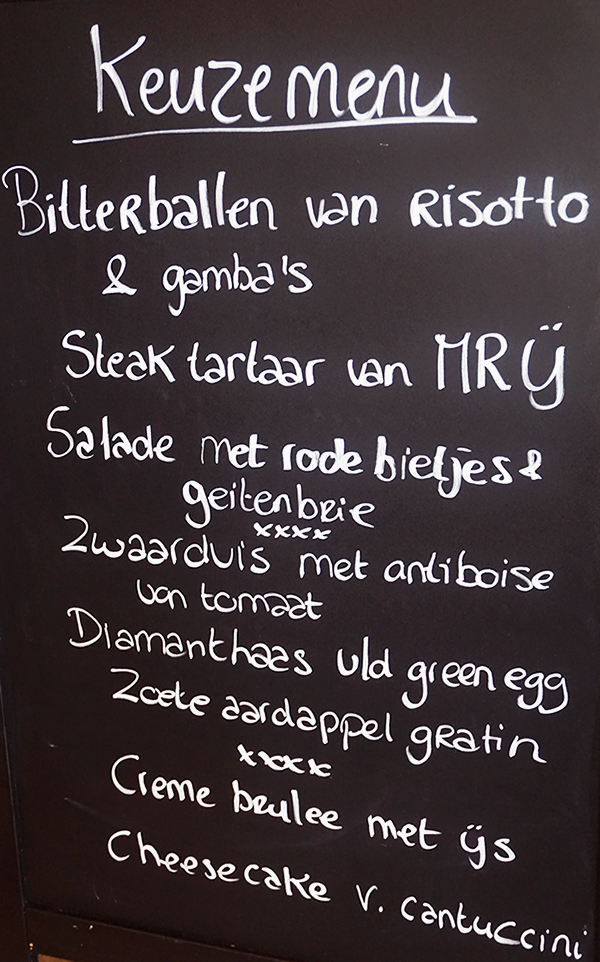 Keuzemenu
Bitterballen van Risotto
& gamba's
Steak tartaar van MRIJ
Salade met rode bietjes &
geitenbrie
xxxx
Zwaarduis met antiboise
van tomaat
Diamanthaas vld green egg
Zoete aardappel gratin
xxxx
Creme brulee met ijs
Cheesecake v. cantuccini